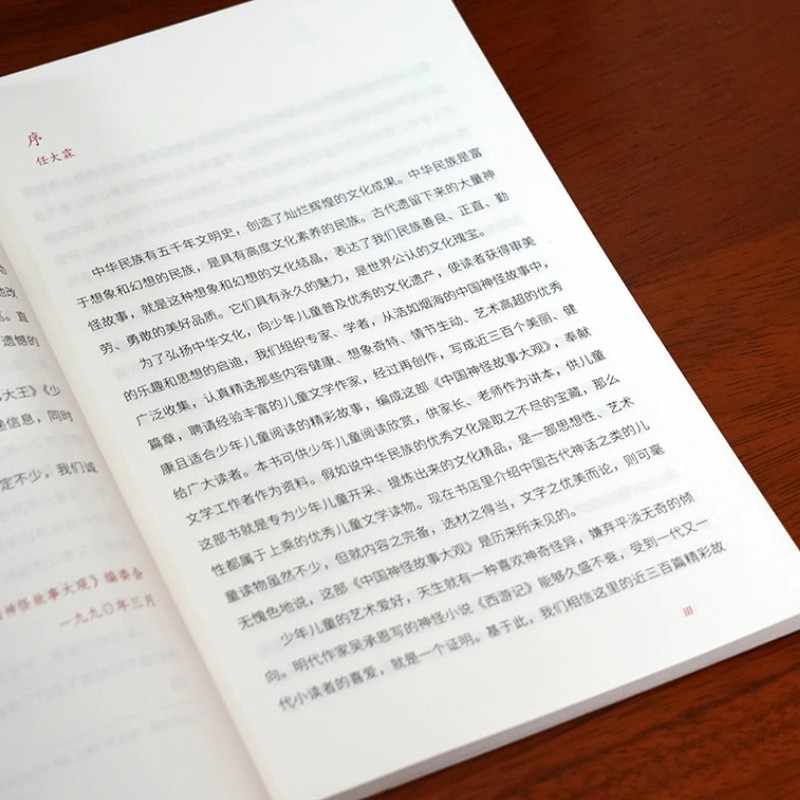 地改
。直
遗憾的
大王》《少
信息，同时
定不少，我们诚
神怪故事大观》编委会
一九九〇年三月
序
任大霖
中华民族有五千年文明史，创造了灿烂辉煌的文化成果。中华民族是富
于想象和幻想的民族，是具有高度文化素养的民族。古代遗留下来的大量神
怪故事，就是这种想象和幻想的文化结晶，表达了我们民族善良、正直、勤
劳、勇敢的美好品质。它们具有永久的魅力，是世界公认的文化瑰宝。
为了弘扬中华文化，向少年儿童普及优秀的文化遗产，使读者获得审美
的乐趣和思想的启迪，我们组织专家、学者，从浩如烟海的中国神怪故事中，
广泛收集，认真精选那些内容健康、想象奇特、情节生动、艺术高超的优秀
篇章，聘请经验丰富的儿童文学作家，经过再创作，写成近三百个美丽、健
康且适合少年儿童阅读的精彩故事，编成这部《中国神怪故事大观》，奉献
给广大读者。本书可供少年儿童阅读欣赏，供家长、老师作为讲本，供儿童
文学工作者作为资料。假如说中华民族的优秀文化是取之不尽的宝藏，那么
这部书就是专为少年儿童开采、提炼出来的文化精品，是一部思想性、艺术
性都属于上乘的优秀儿童文学读物。现在书店里介绍中国古代神话之类的儿
童读物虽然不少，但就内容之完备，选材之得当，文字之优美而论，则可毫
无愧色地说，这部《中国神怪故事大观》是历来所未见的。
少年儿童的艺术爱好，天生就有一种喜欢神奇怪异，嫌弃平淡无奇的倾
向。明代作家吴承恩写的神怪小说《西游记》能够久盛不衰，受到一代又一
代小读者的喜爱，就是一个证明。基于此，我们相信这里的近三百篇精彩故
III